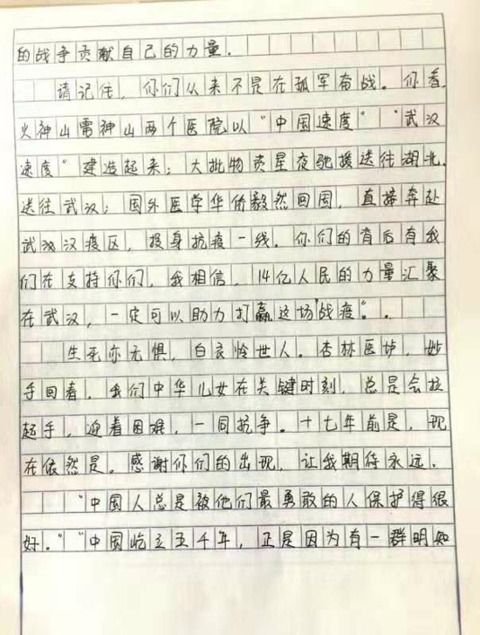 的战争贡献自己的力量.
请记住，你们从来不是在孤军奋战。你看，
火神山雷神山两个医院以"中国速度""武汉
速度"建造起来；大批物资星夜驰援送往湖北，
送往武汉；国外医学华侨毅然回国，直接奔赴
武汉汉疫区，投身抗疫一线。你们的背后有我
们在支持你们，我相信，14亿人民的力量汇聚
在武汉，一定可以助力打赢这场"战疫"。
生死亦无惧，白衣怜世人。杏林医护，妙
手回春，我们中华儿女在关键时刻，总是会拉
起手，迎着困难，一同抗争。十七年前是，现
在依然是。感谢你们的出现，让我期待永远.
"中国人总是被他们最勇敢的人保护得很
好。""中国屹立五千年，正是因为有一群明知